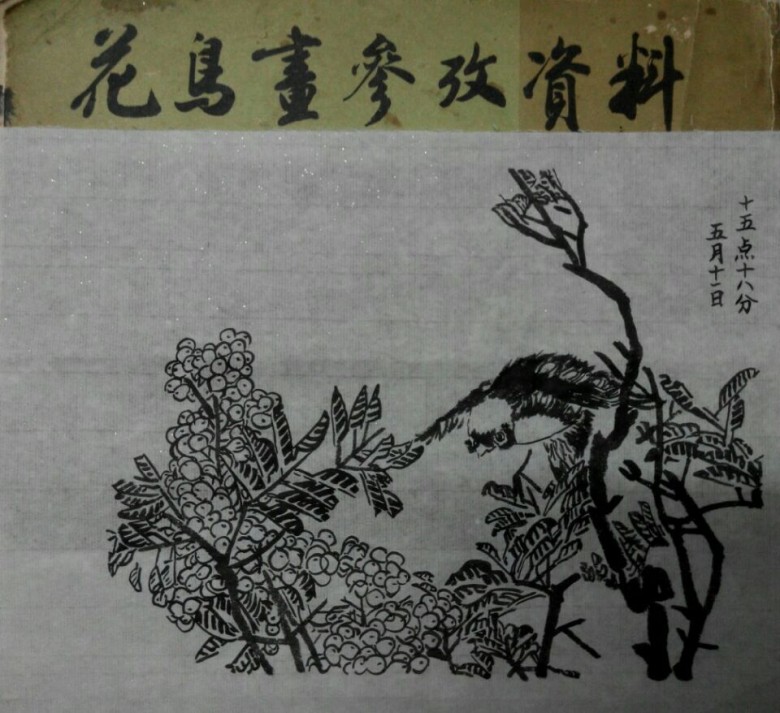 花鳥畫參攷資料
十五点十八分
五月十二日